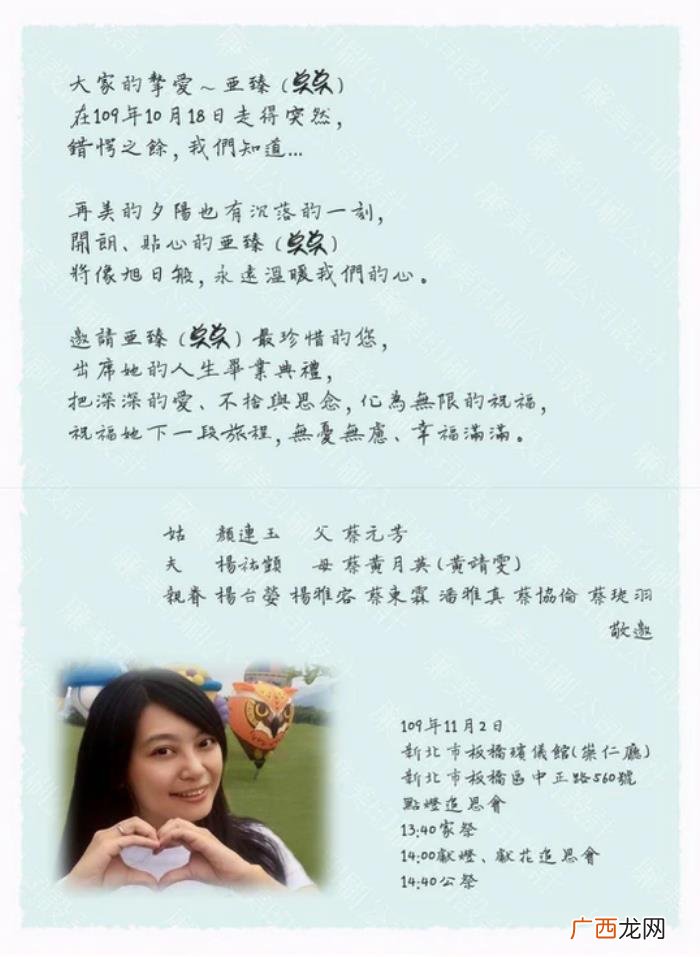 大家的摯愛~亞臻(奂奂)
在109年10月18日走得突然,
錯愕之餘,我們知道...
再美的夕陽也有沉落的一刻,
開朗、貼心的亞臻(奂奂)
將像旭日般,永遠溫暖我們的心。
邀請亞臻(奂奂)最珍惜的您,
出席她的人生畢業典禮,
把深深的愛、不捨與思念,化為無限的祝福,
祝福她下一段旅程,無憂無慮、幸福滿滿。
姑 顏連玉 父 蔡元芳
夫 楊祐顗 母 蔡黃月英(黃靖雯)
親眷 楊台螢 楊雅容 蔡東霖 潘雅真 蔡協倫 蔡珽羽
敬邀
109年11月2日
新北市板橋殯儀館(崇仁廳)
新北市板橋區中正路560號
點燈追思會
13:40家祭
14:00獻燈、獻花追思會
14:40公祭
广西龙网